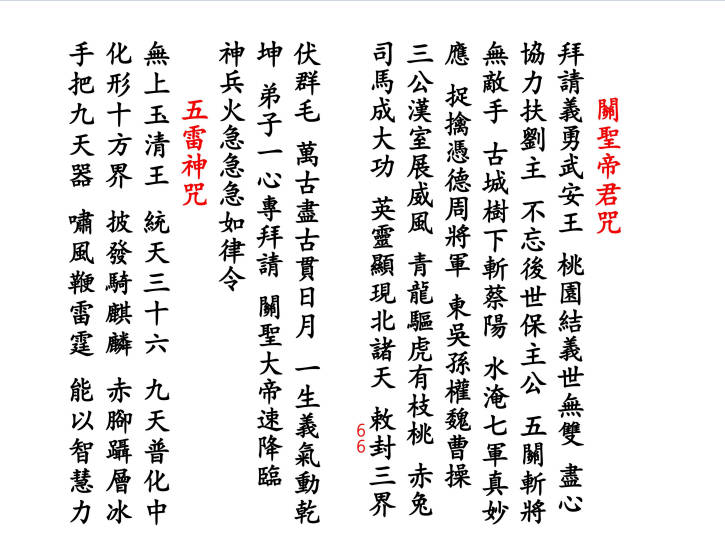 關聖帝君咒
拜請義勇武安王 桃園結義世無雙 盡心
協力扶劉主 不忘後世保主公 五關斬將
無敵手 古城樹下斬蔡陽 水淹七軍真妙
應 捉擒憑德周將軍 東吳孫權魏曹操
三公漢室展威風 青龍驅虎有枝桃 赤兔
司馬成大功 英靈顯現北諸天 敕封三界
66
伏群毛 萬古盡古貫日月 一生義氣動乾
坤 弟子一心專拜請 關聖大帝速降臨
神兵火急急急如律令
五雷神咒
無上玉清王 統天三十六 九天普化中
化形十方界 披發騎麒麟 赤腳躡層冰
手把九天器 嘯風鞭雷霆 能以智慧力